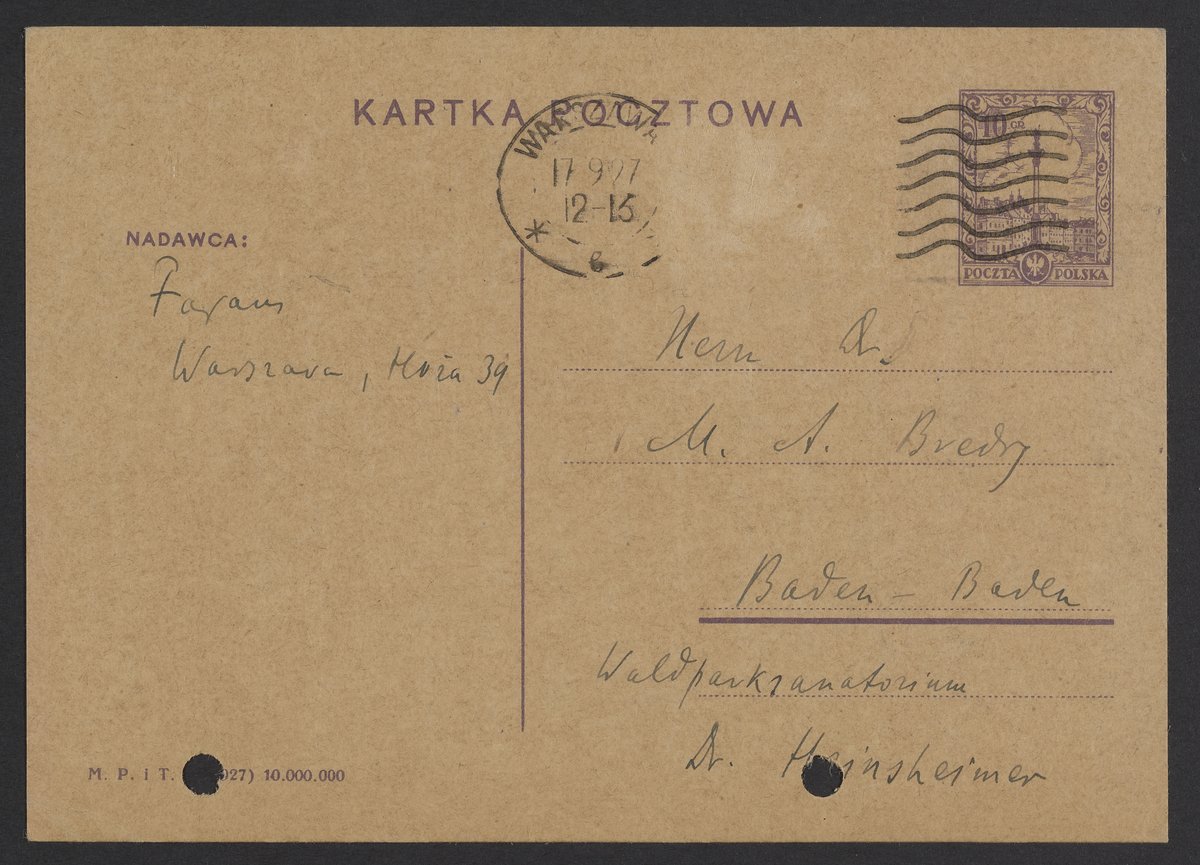 KARTKA POCZTOWA
WARSZAWA
17.9.27
12-15
*
e
10 GR
POCZTA POLSKA
NADAWCA:
Fajans
Warszawa, Hoża 39
Herrn Dr.
M. A. Bredig
Baden - Baden
Waldparksanatorium
Dr. Heinsheimer
M. P. i T. 027) 10.000.000